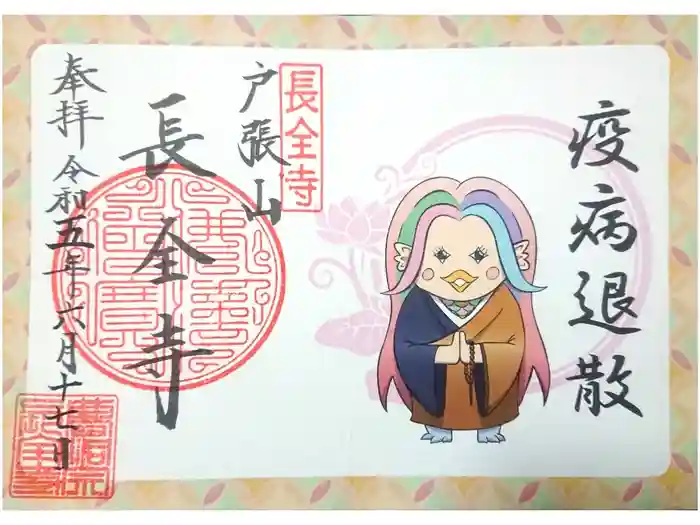 疫病退散
長全寺
戸張山
長全寺
奉拝 令和五年六月十七日